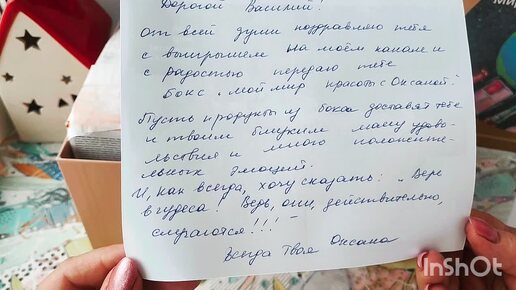 Дорогой Василий!
От всей души поздравляю тебя
с выигрышем на моём канале и
с радостью передаю тебе
бокс „Мой мир красоты с Оксаной".
Пусть продукты из бокса доставят тебе
и твоим близким массу удово-
льствия и много положите-
льных эмоций.
И, как всегда, хочу сказать: „Верь
в чудеса! Ведь, они, действительно,
случаются!!!"
Всегда Твоя Оксана
InShOt